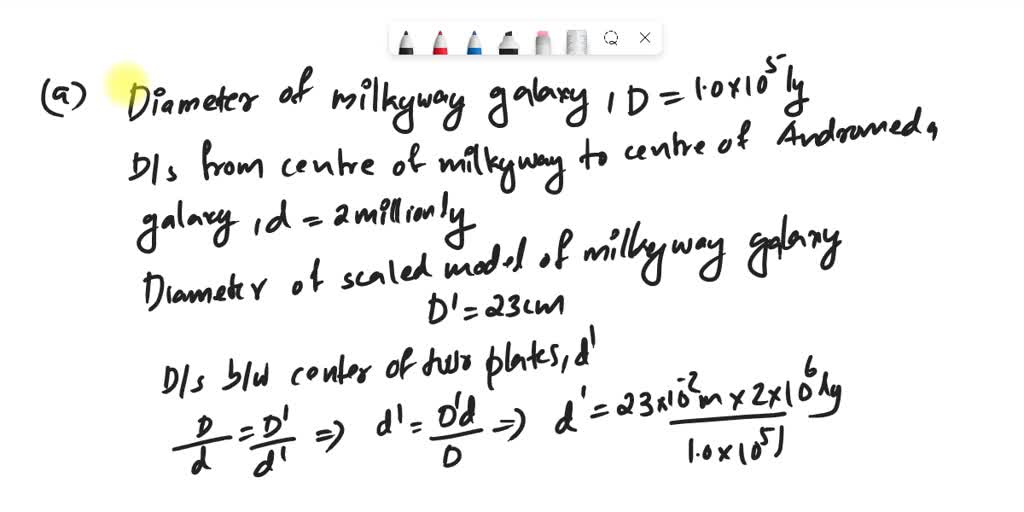 (a) Diameter of milkyway galaxy, D = 1.0×10⁵ ly
D/s from centre of milkyway to centre of Andromeda
galaxy, d = 2 million ly
Diameter of scaled model of milkyway galaxy
D' = 23cm
D/s b/w center of two plates, d'
D/d = D'/d' ⇒ d' = D'd/D ⇒ d' = 23×10⁻²m × 2×10⁶ ly / 1.0×10⁵ l